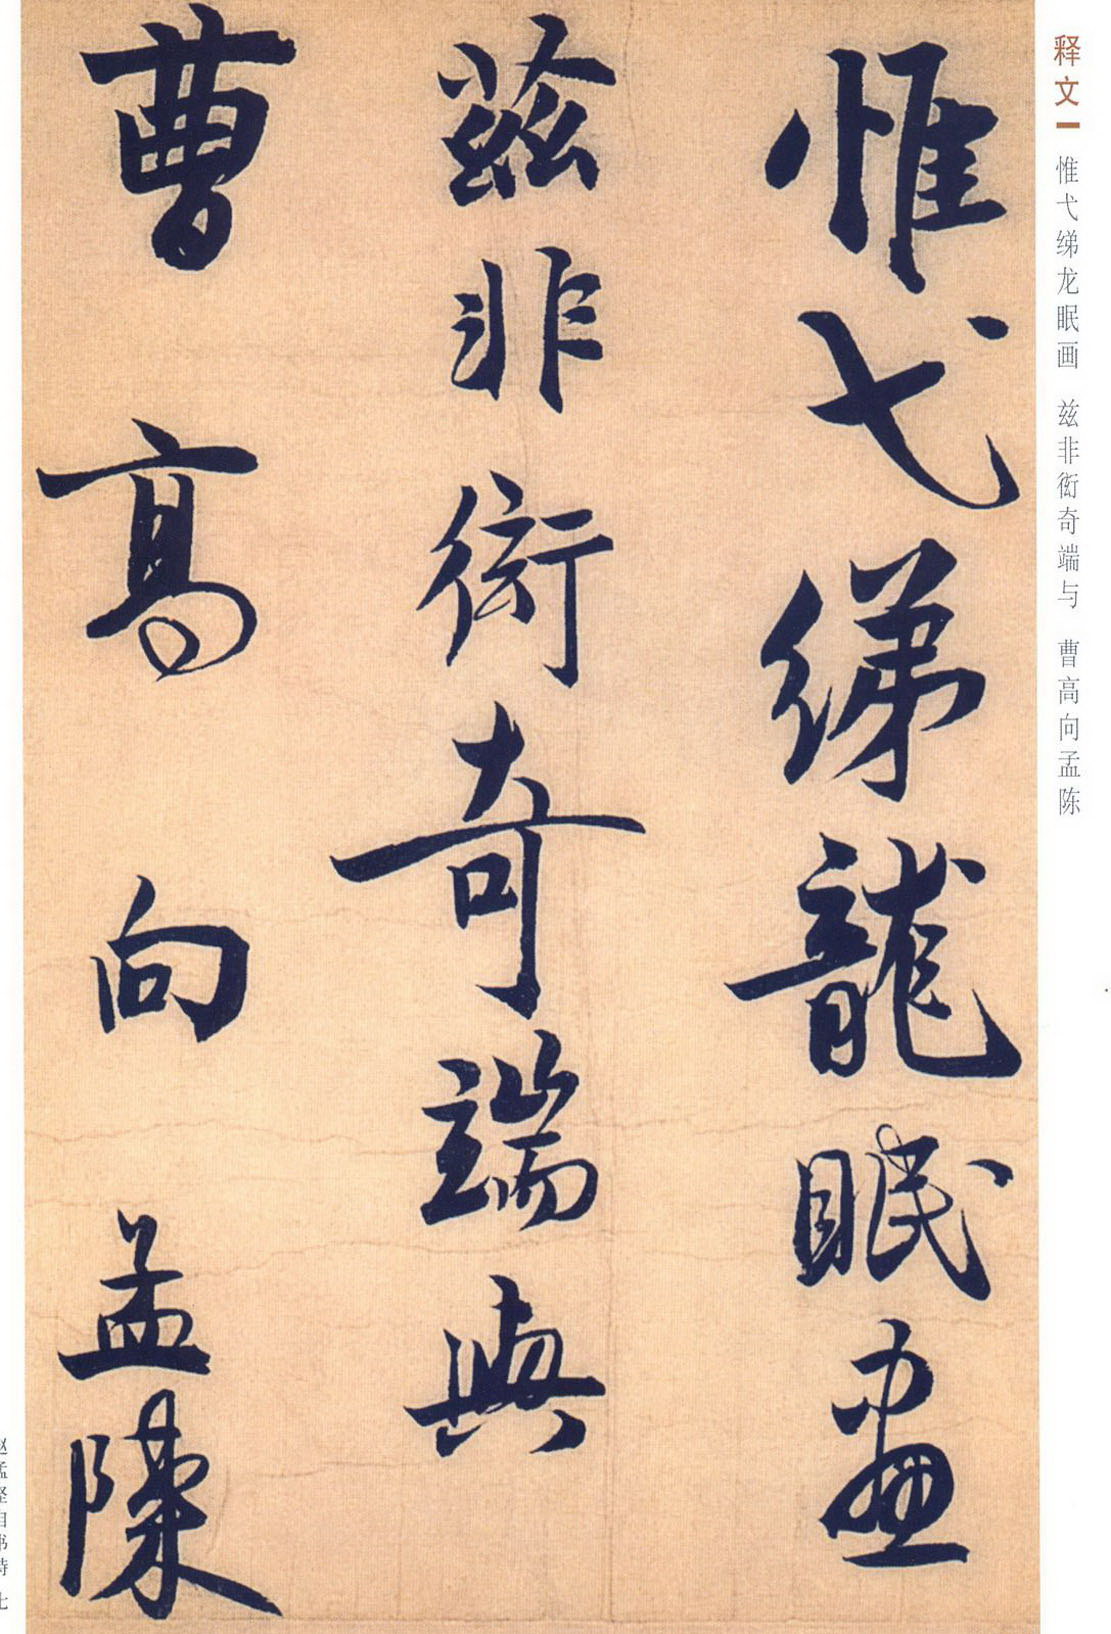 释文
惟弋绨龙眠画 兹非衒奇端与 曹高向孟陈
惟弋綈龍眠畫
茲非衒奇端與
曹高向孟陳
赵孟坚自书诗 七